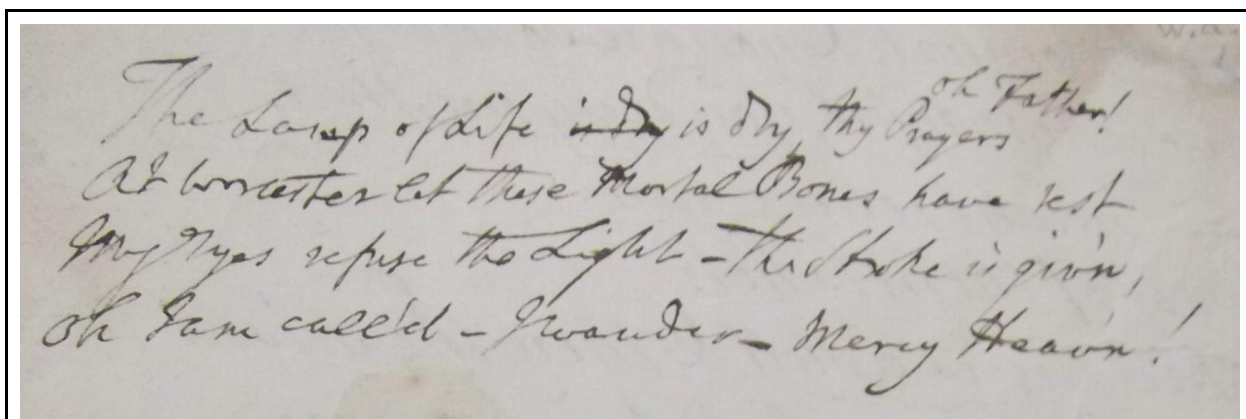 The Lamp of Life is dry is dry, thy Prayers oh Father!
At Worcester let these Mortal Bones have rest
My Eyes refuse the Light – the Stroke is giv'n,
Oh I am call'd – I wander – Mercy Heav'n!